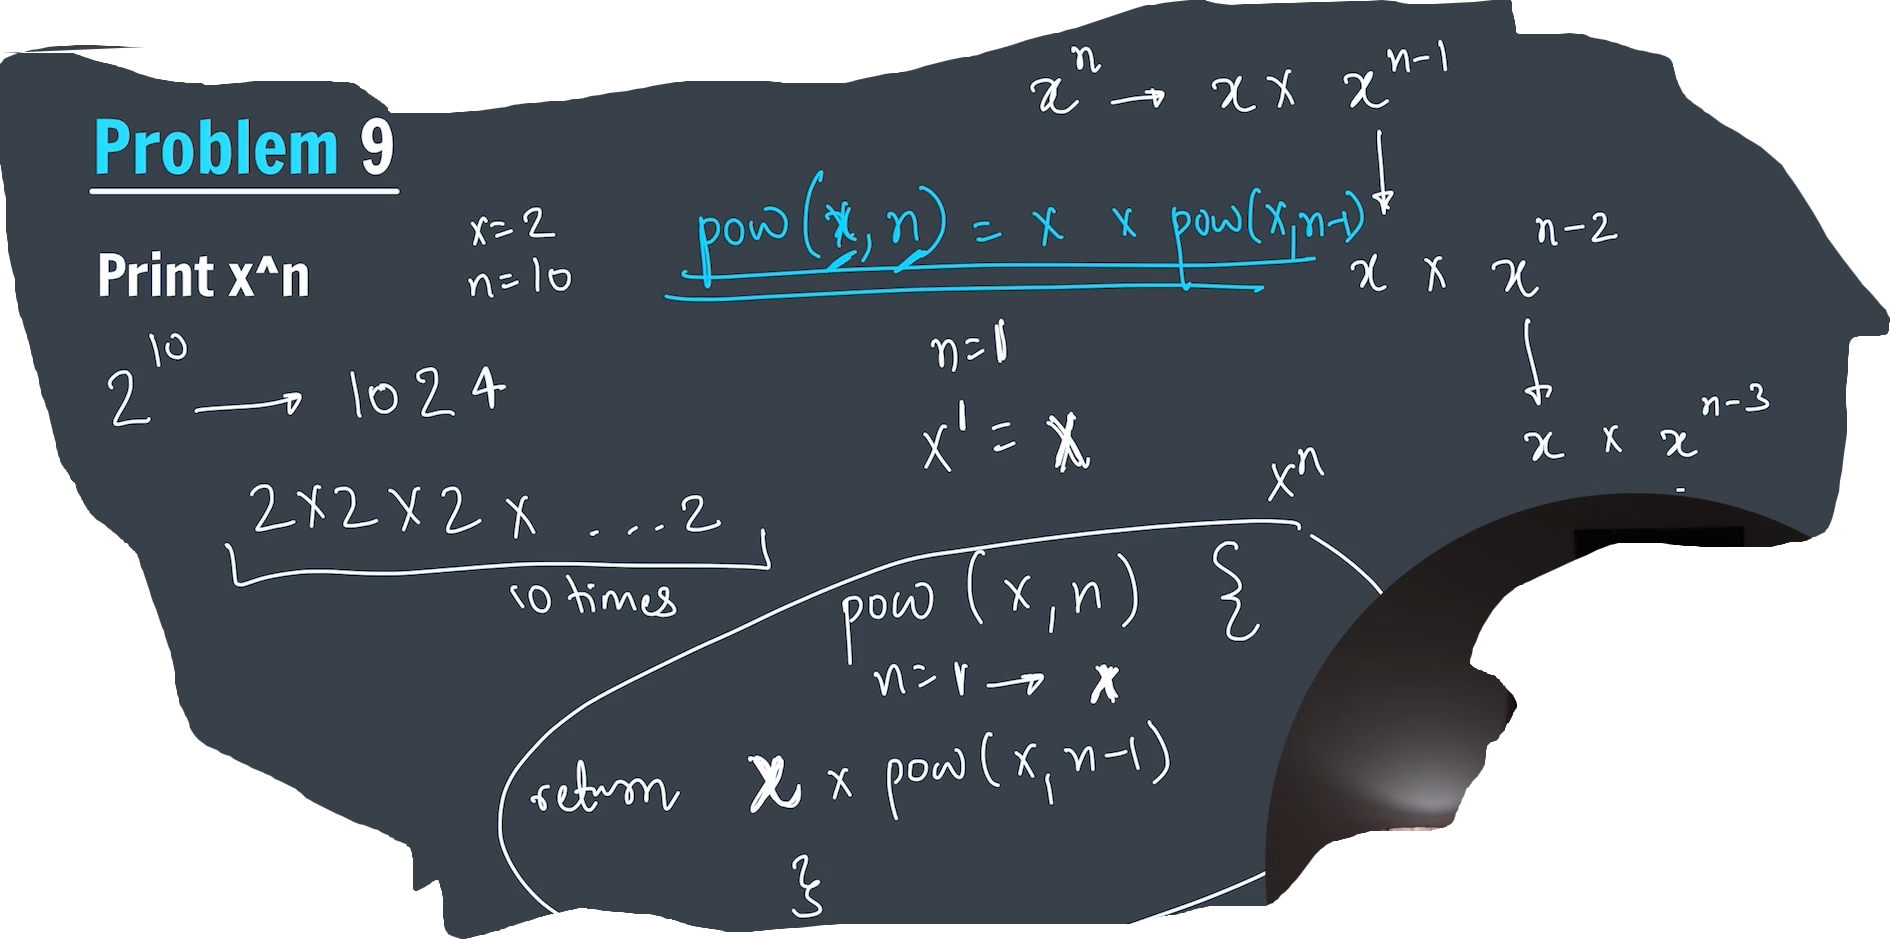 Problem 9
Print x^n
x=2
n=10
2^10 → 1024
2x2x2x ....2
10 times
x^n → x x x^n-1
pow(x,n) = x x pow(x,n-1)
x x x^n-2
x x x^n-3
n=1
x^1 = x
x^n
pow (x,n) {
n=1 → x
return x x pow(x,n-1)
}